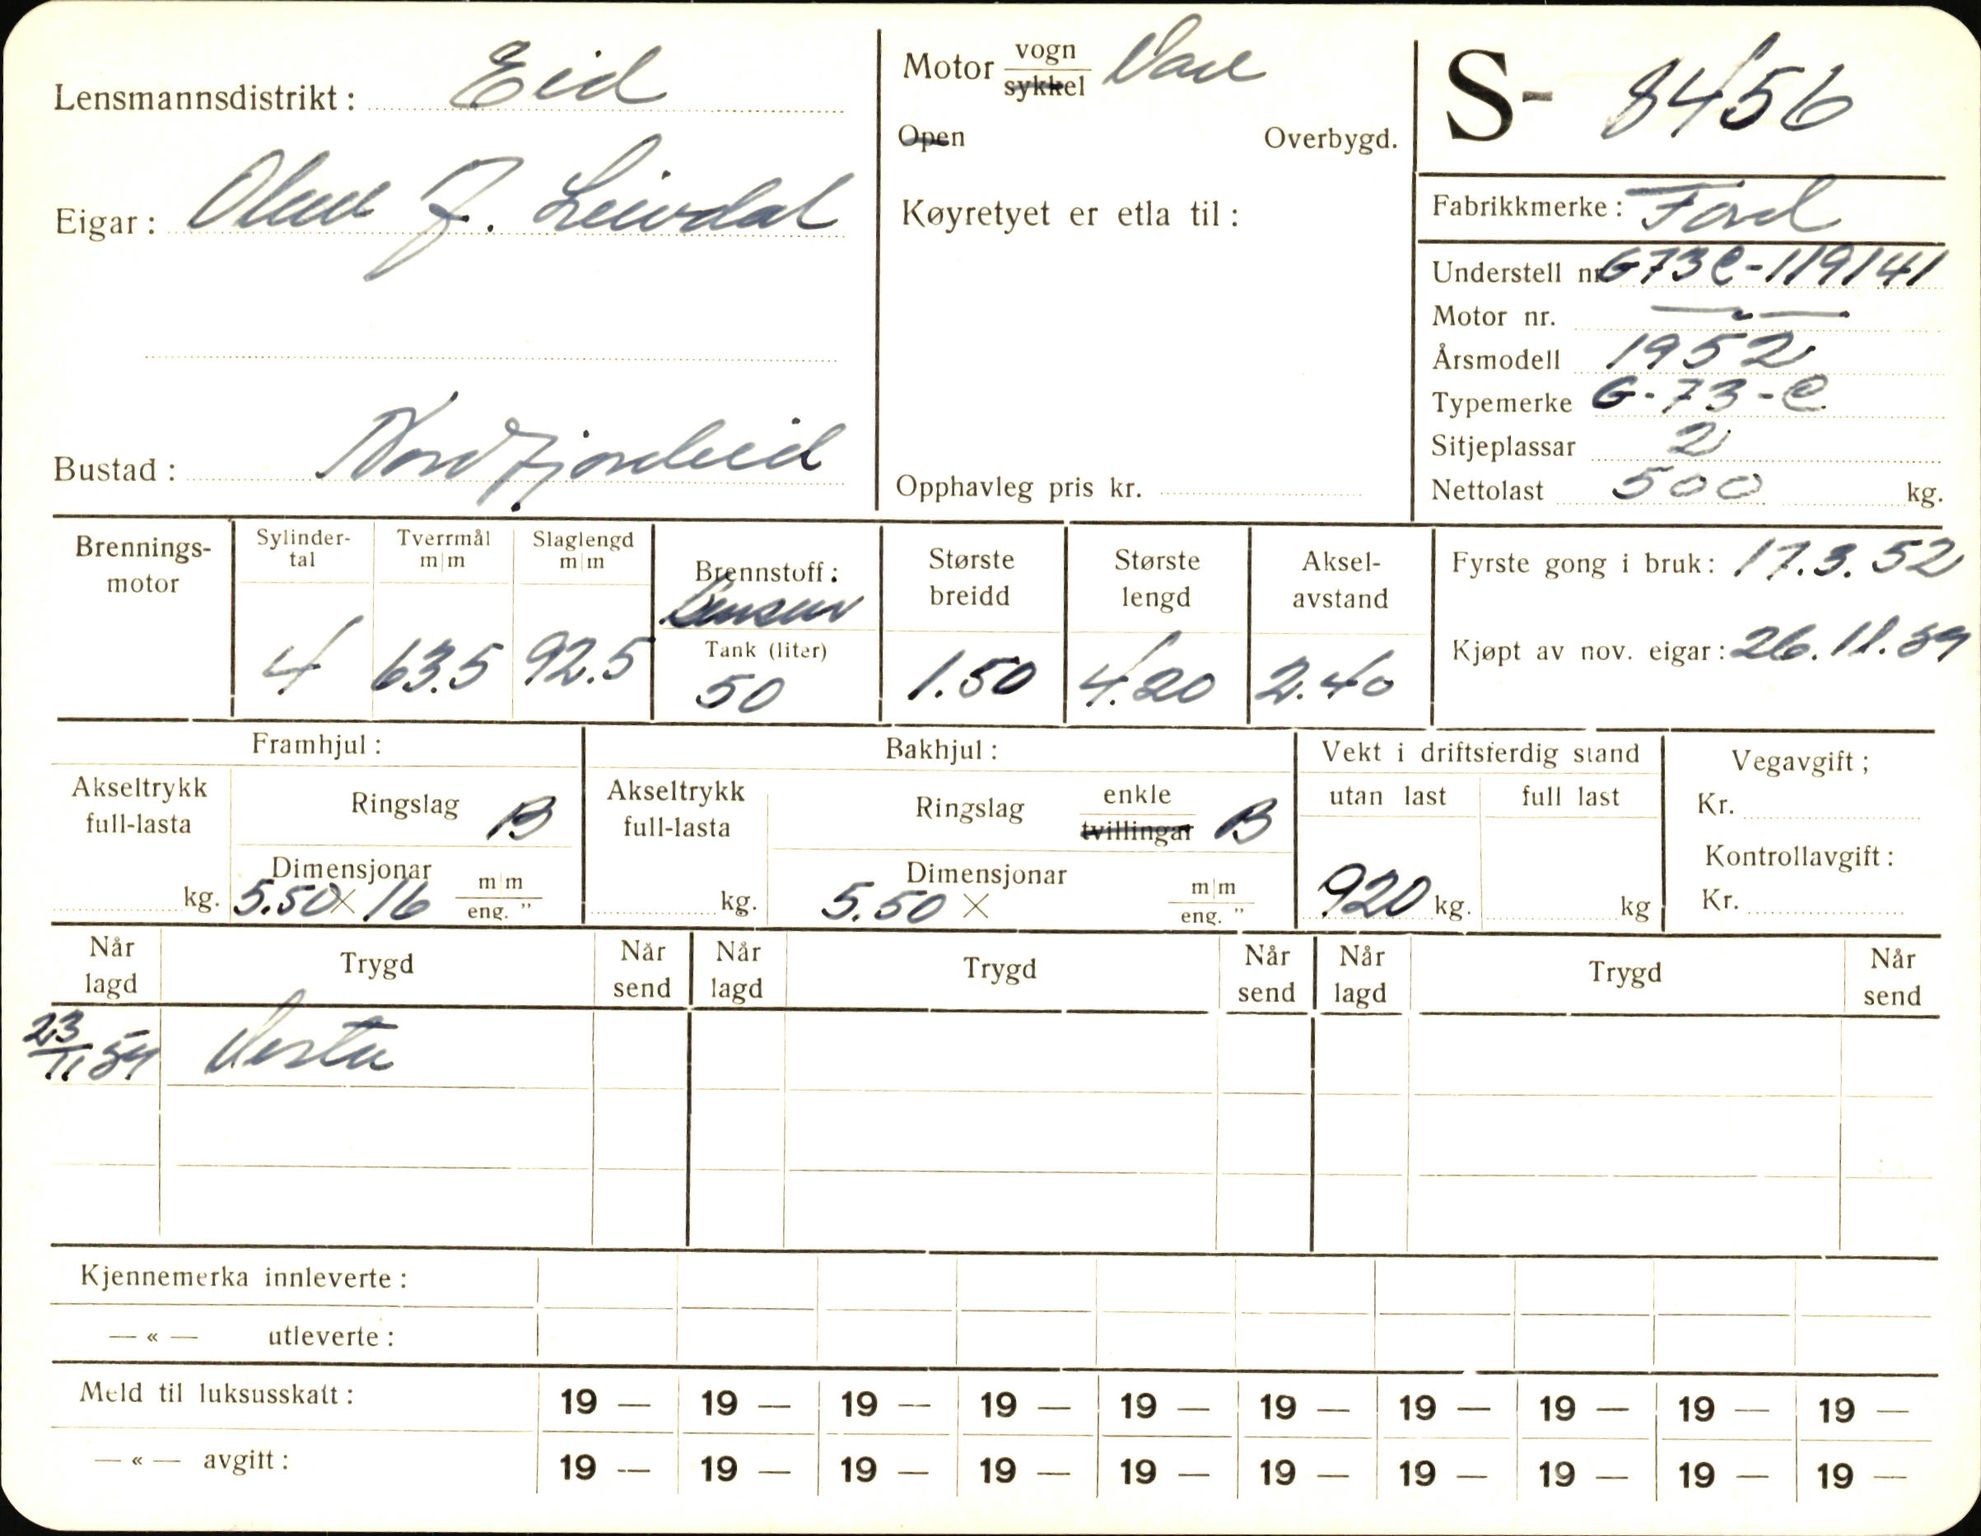 Lensmannsdistrikt: Eid
Eigar: J. Leivdal
Bustad: Nordfjordeid
Motor vogn / sykkel Vare
Open Overbygd.
Køyretyet er etla til:
Opphavleg pris kr.
S- 8456
Fabrikkmerke: Ford
Understell nr. G73C-119141
Motor nr. — " —
Årsmodell 1952
Typemerke G-73-C
Sitjeplassar 2
Nettolast 500 kg.
Brennings-
motor
Sylinder-
tal
4
Tverrmål
m|m
63.5
Slaglengd
m|m
92.5
Brennstoff:
Bensin
Tank (liter)
50
Største
breidd
1.50
Største
lengd
4.20
Aksel-
avstand
2.40
Fyrste gong i bruk: 17.3.52
Kjøpt av nov. eigar: 26.11.59
Framhjul:
Akseltrykk
full-lasta
kg.
Ringslag B
Dimensjonar
5.50 × 16 m|m
eng. "
Bakhjul:
Akseltrykk
full-lasta
kg.
Ringslag enkle / tvillingar B
Dimensjonar
5.50 × m|m
eng. "
Vekt i driftsferdig stand
utan last
920 kg.
full last
kg
Vegavgift;
Kr.
Kontrollavgift:
Kr.
Når lagd Trygd Når send Når lagd Trygd Når send Når lagd Trygd Når send
23/11 59 Vesta
Kjennemerka innleverte:
— « — utleverte:
Meld til luksusskatt: 19 — 19 — 19 — 19 — 19 — 19 — 19 — 19 — 19 — 19 —
— « — avgitt: 19 — 19 — 19 — 19 — 19 — 19 — 19 — 19 — 19 — 19 —